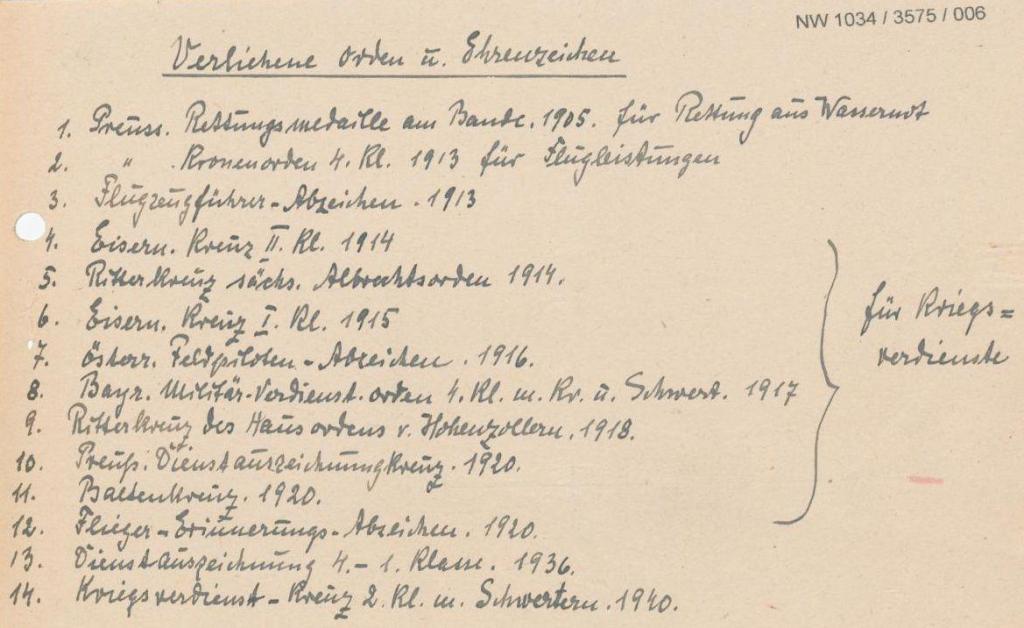 NW 1034 / 3575 / 006
Verliehene Orden u. Ehrenzeichen
1. Preuss. Rettungsmedaille am Bande. 1905. für Rettung aus Wassernot
2. " Kronenorden 4. Kl. 1913 für Flugleistungen
3. Flugzeugführer-Abzeichen. 1913
4. Eisern. Kreuz II. Kl. 1914
5. Ritterkreuz sächs. Albrechtsorden 1914.
6. Eisern. Kreuz I. Kl. 1915
für Kriegs=
7. österr. Feldpiloten-Abzeichen. 1916.
verdienste
8. Bayr. Militär-Verdienst.orden 4. Kl. m. Kr. u. Schwert. 1917
9. Ritterkreuz des Hausordens v. Hohenzollern. 1918.
10. Preuß. Dienstauszeichnungkreuz. 1920.
11. Baltenkreuz. 1920.
12. Flieger-Erinnerungs-Abzeichen. 1920.
13. Dienstauszeichnung 4.- 1. Klasse. 1936.
14. Kriegsverdienst-Kreuz 2. Kl. m. Schwertern. 1940.